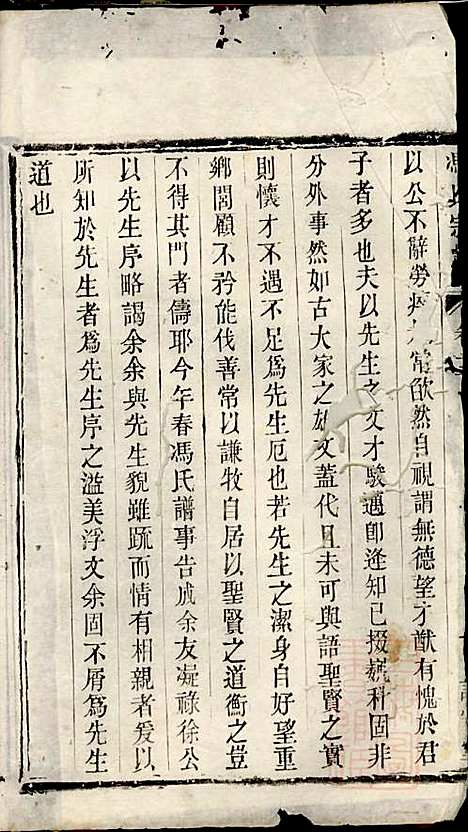 馮氏宗譜
以公不辭勞瘁常欲然自視謂無德望才猷有愧於君
子者多也夫以先生之文才駿邁卽逢知己掇巍科固非
分外事然如古大家之雄文蓋代且未可與語聖賢之實
則懷才不遇不足爲先生厄也若先生之潔身自好望重
鄉閭顧不矜能伐善常以謙牧自居以聖賢之道衡之豈
不得其門者儔耶今年春馮氏譜事告成余友凝祿徐公
以先生序略謁余余與先生貌雖疏而情有相親者爰以
所知於先生者爲先生序之溢美浮文余固不屑爲先生
道也